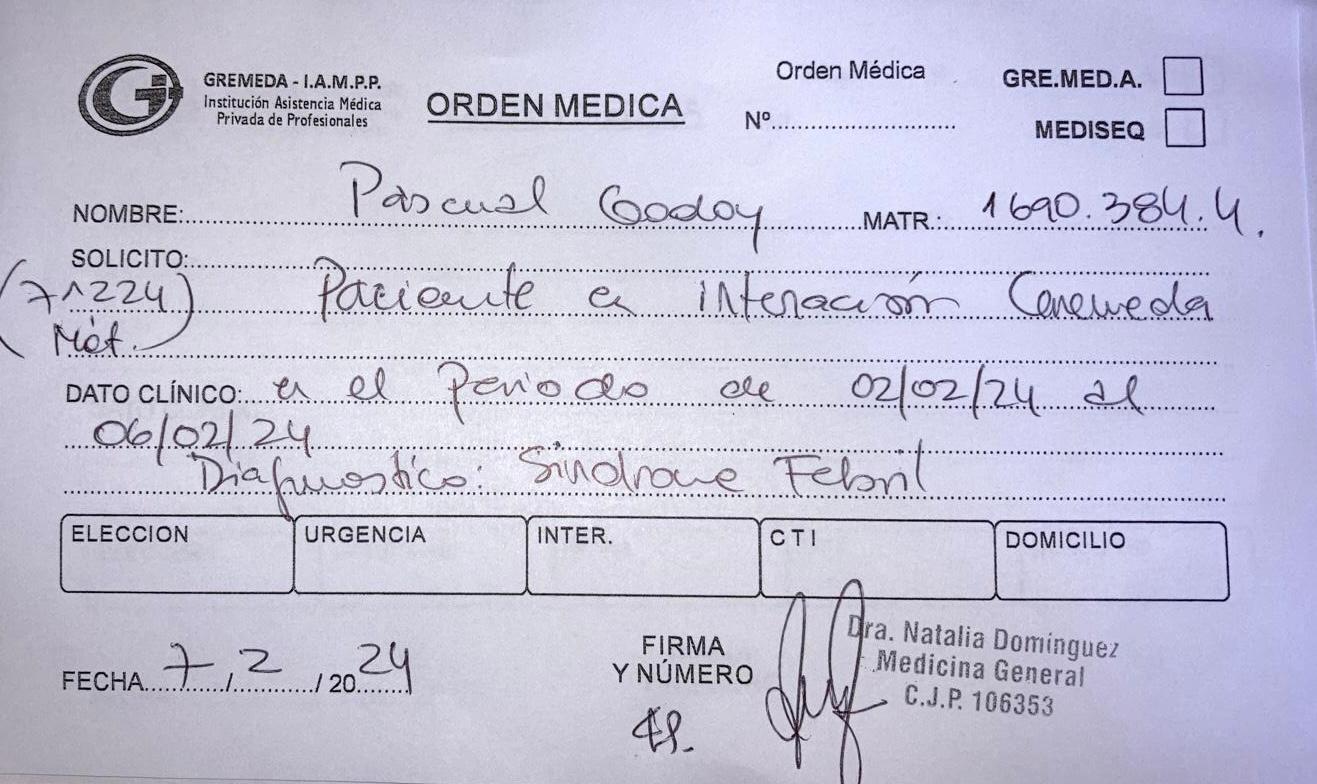 GREMEDA - I.A.M.P.P.
Institución Asistencia Médica
Privada de Profesionales
ORDEN MEDICA
Orden Médica
Nº
GRE.MED.A.
MEDISEQ
NOMBRE: Pascual Godoy MATR.: 1690.384.4.
SOLICITO:
(71224) Paciente en internación Caremeda
Mát.
DATO CLÍNICO: en el Periodo de 02/02/24 al
06/02/24
Diagnostico: Síndrome Febril
ELECCION URGENCIA INTER. CTI DOMICILIO
FECHA 7 / 2 / 2024
FIRMA
Y NÚMERO
Dra. Natalia Domínguez
Medicina General
C.J.P. 106353